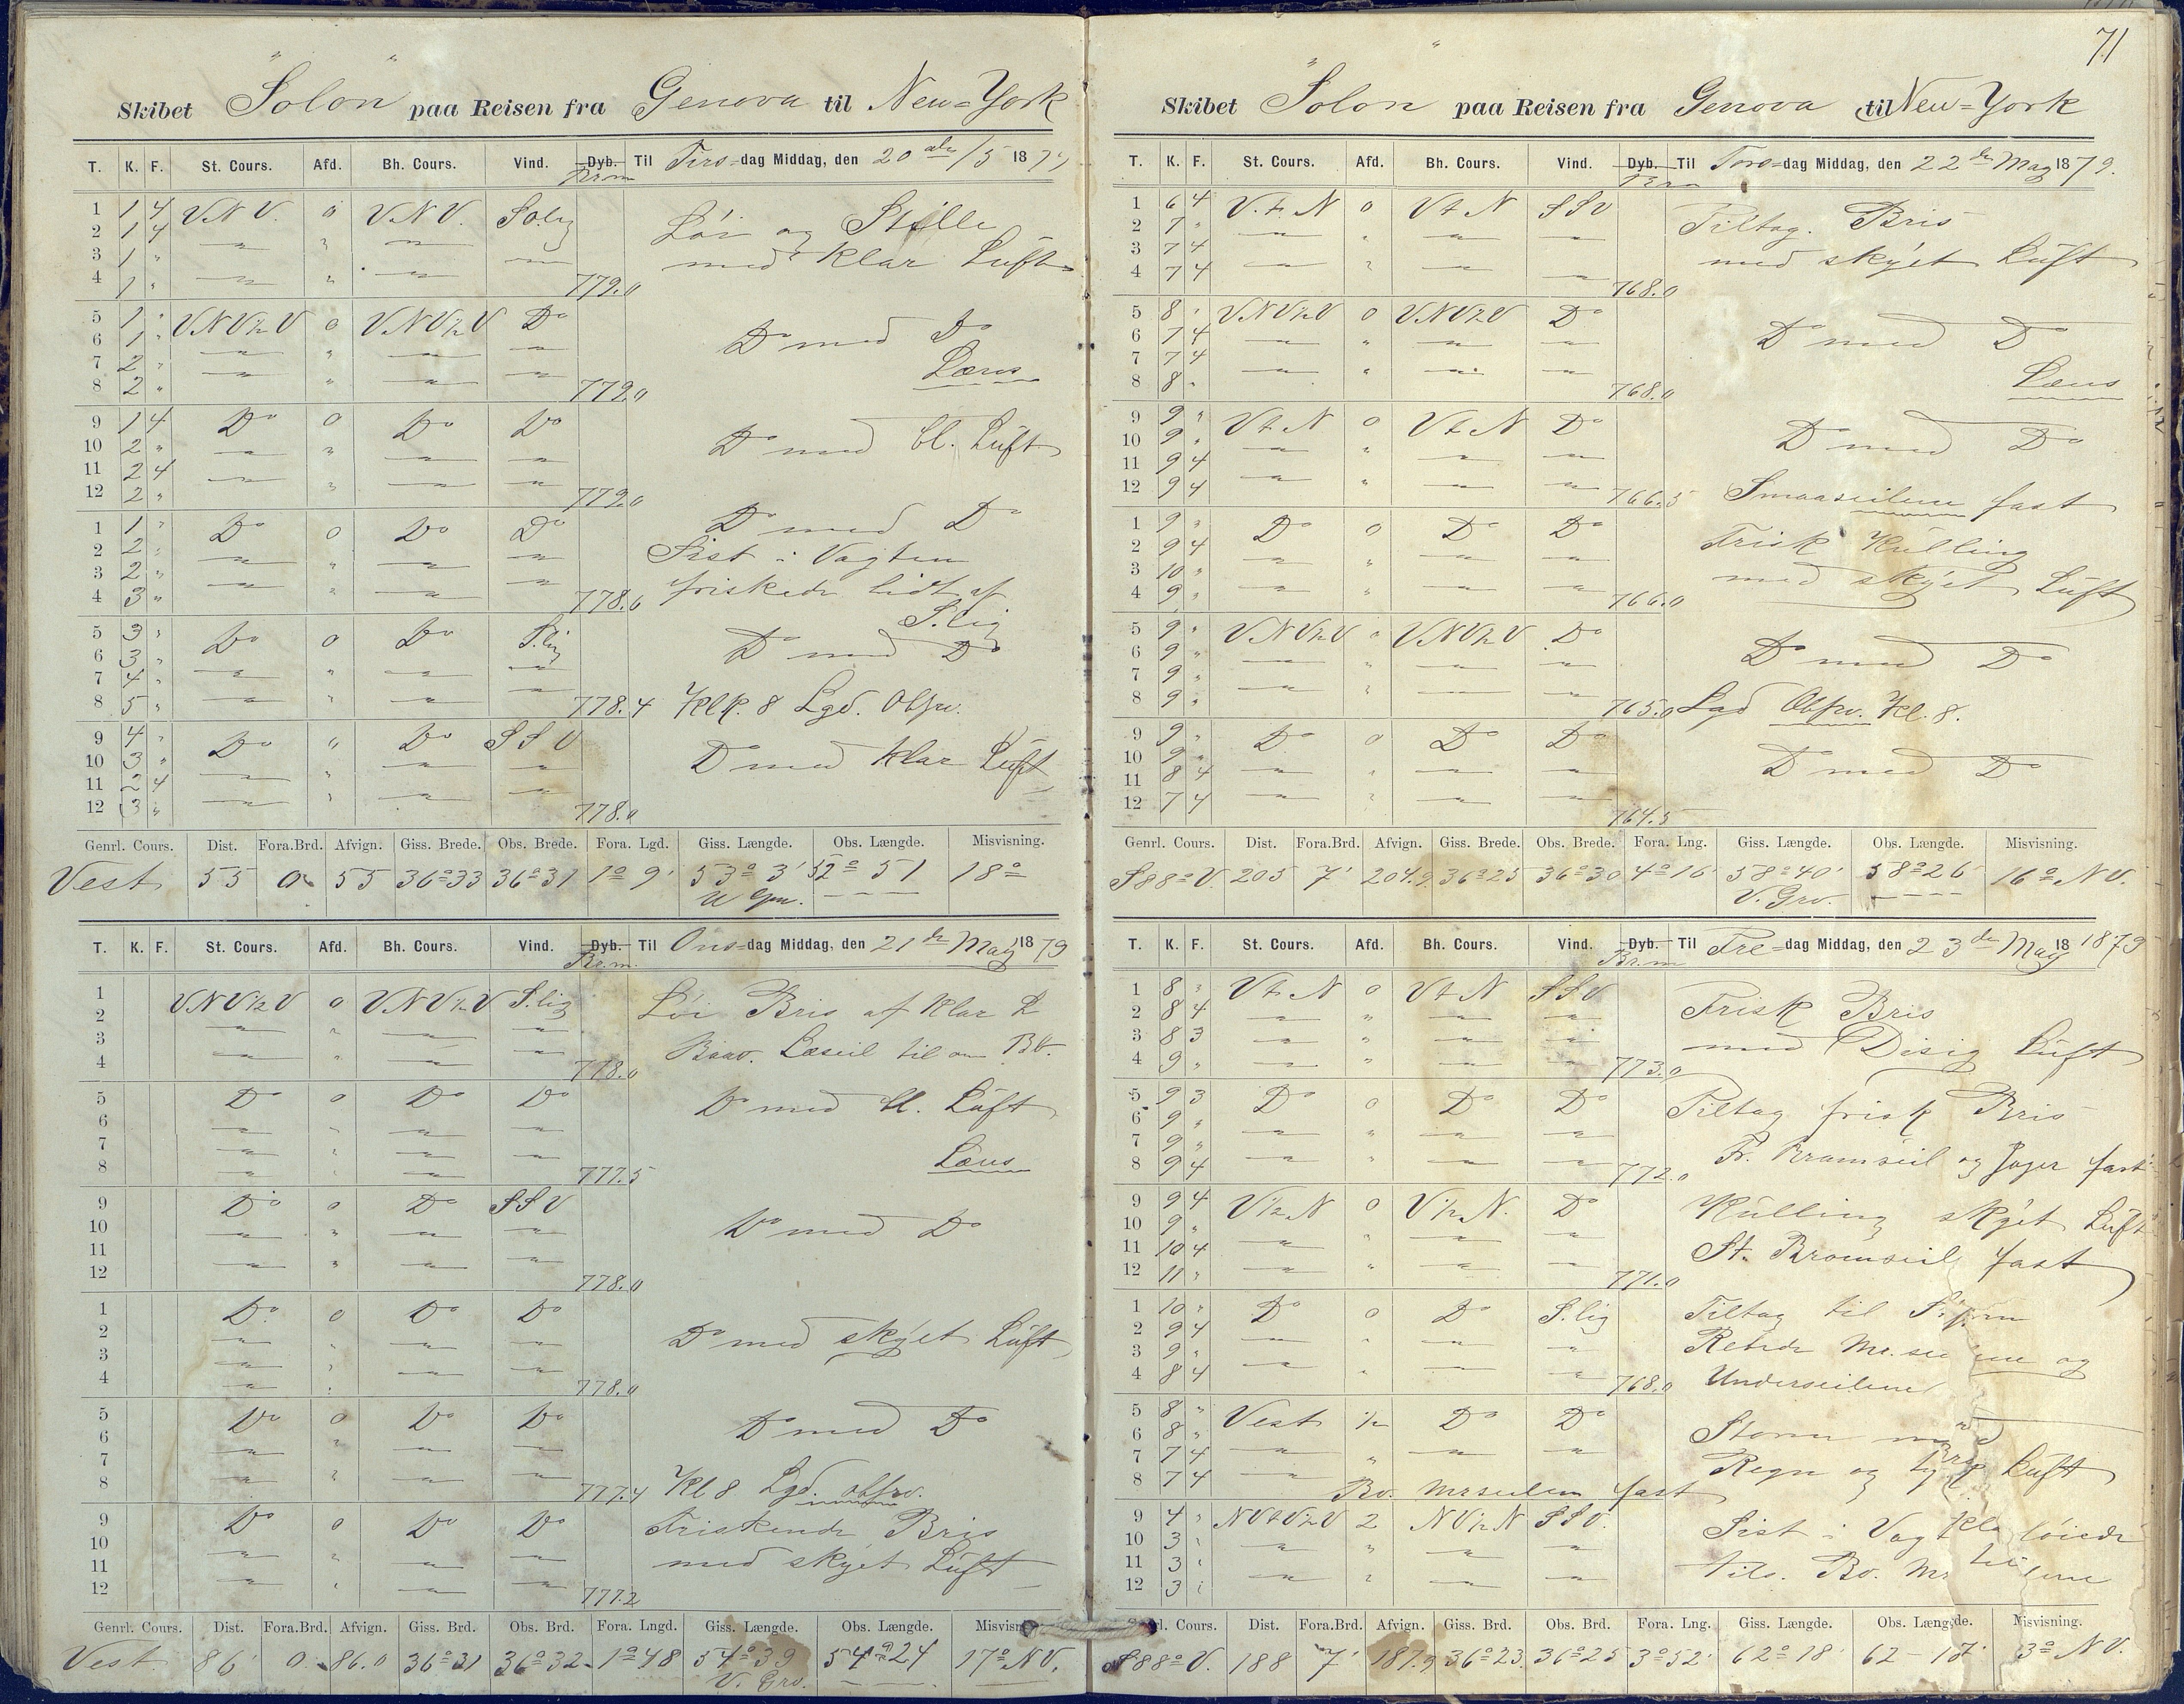 71
Skibet "Solon" paa Reisen fra Genova til New=York
T. K. F. St. Cours. Afd. Bh. Cours. Vind. Dyb. Til Tirs=dag Middag, den 20 de/5 1879
Brm
1 1 4 VNV. 0 VNV. So.lig Löi og Stille
2 1 4 " " " "
3 1 " " " med klar Luft
4 1 " " " " 779.0
5 1 " VNV½V 0 VNV½V Do
6 1 " " " " " Do med Do
7 2 " " " " " Læns
8 2 " " " " 779.0
9 1 4 Do 0 Do Do
10 2 " " " " " Do med bl. Luft
11 2 4 " " " "
12 2 " 779.0
1 1 " Do 0 Do Do Do med Do
2 2 " " " " " Sist i Vagten
3 2 " " " " " friskede lidt af
4 3 " 778.6 S.lig
5 3 " Do 0 Do S.lig
6 3 " " " " " Do med Do
7 4 " " " " "
8 5 " 778.4 Klk. 8 Lgd. Obsv.
9 4 " Do " Do SSV
10 3 " " " " " Do med klar Luft
11 2 4 " " " "
12 3 " 778.0
Genrl. Cours. Dist. Fora.Brd. Afvign. Giss. Brede. Obs. Brede. Fora. Lgd. Giss. Længde. Obs. Længde. Misvisning.
Vest 55 0 55 36°33 36°31 1° 9' 53° 3' 52° 51 18°
T. K. F. St. Cours. Afd. Bh. Cours. Vind. Dyb. Til Ons=dag Middag, den 21 de May 1879
Br.m.
1 VNV½V 0 VNV½V S.lig Löi Bris af klar L
2 " " " "
3 " " " " Læseil til om BV.
4 778.0
5 Do 0 Do Do Do med bl. Luft
6 " " " "
7 " " " " Læns
8 " " " 777.5
9 Do 0 Do SSV
10 " " " " Do med Do
11 " " " "
12 778.0
1 Do 0 Do Do
2 " " " " Do med skyet Luft
3 " " " "
4 " " 778.0
5 Do 0 Do Do Do med Do
6 " " " "
7 " " " "
8 777.4 Kl 8 Lgd. obsv.
9 Do 0 Do Do Friskende Bris
10 " " " "
11 " " " " med skyet Luft
12 777.2
Genrl. Cours. Dist. Fora.Brd. Afvign. Giss. Brd. Obs. Brd. Fora. Lngd. Giss. Længde. Obs. Længde. Misvisn
Vest 86' 0 86.0 36°31 36°32 1°48 54°39 54°24 17° NV.
V. Grv.
Skibet "Solon" paa Reisen fra Genova til New=York
T. K. F. St. Cours. Afd. Bh. Cours. Vind. Dyb. Til Tors=dag Middag, den 22 de May 1879.
Brm
1 6 4 V.t.N 0 VtN SSV Tiltag. Bris
2 7 " " " " "
3 7 4 " " " " med skyet Luft
4 7 4 768.0
5 8 " VNV½V 0 VNV½V Do
6 7 4 " " " " Do med Do
7 7 4 " " " " Læns
8 8 " 768.0
9 9 " VtN 0 VtN Do
10 9 " " " " " Do med Do
11 9 4 " " " "
12 9 4 766.5 Smaaseilene fast
1 9 " Do 0 Do Do Frisk Kulling
2 9 4 " " " "
3 10 " " " " " med skyet Luft
4 9 " 766.0
5 9 " VNV½V 0 VNV½V Do
6 9 " " " " " Do med Do
7 9 " " " " "
8 9 " 765.0 Lgd Obsv. Kl. 8.
9 9 " Do 0 Do Do
10 9 " " " " " Do med Do
11 8 4 " " " "
12 7 4 764.5
Genrl. Cours. Dist. Fora.Brd. Afvign. Giss. Brede. Obs. Brede. Fora. Lng. Giss. Længde. Obs. Længde. Misvisning.
S88°V. 205 7' 204.9 36°25 36°30 4°16 58°40' 58°26 16° NV.
V. Grv.
T. K. F. St. Cours. Afd. Bh. Cours. Vind. Dyb. Til Fre=dag Middag, den 23 de May 18 1879
Br.m
1 8 " VtN 0 VtN SSV Frisk Bris
2 8 4 " " " "
3 8 3 " " " " med Disig Luft
4 9 " 773.0
5 9 3 Do 0 Do Do Tiltag frisk Bris
6 9 " " " " "
7 9 " " " " " Fr. Bramseil og Jager fast
8 9 4 772.0
9 9 4 V½N 0 V½N. Do Kulling skyet Luft
10 9 " " " " "
11 10 4 " " " " St. Bramseil fast
12 11 " 771.0
1 10 " Do 0 Do S.lig Tiltag til Storm
2 9 4 " " " "
3 9 " " " " " Rebede og
4 8 4 768.0 Underseilene
5 8 " Vest ½ Do Do Storm med
6 8 " " " " "
7 7 4 " " " " Regn og Luft
8 7 4 Bv. Mrseilen fast
9 4 " NVtV½V 2 NV½N SSV. Sist i Vagt löiede
10 3 " " " " "
11 3 " " " " " tils. Bv.
12 3 "
Cours. Dist. Fora.Brd. Afvign. Giss. Brd. Obs. Brd. Fora. Lng. Giss. Længde. Obs. Længde. Misvisning.
S88°V. 188 7' 187.9 36°23. 36°25 3°52' 62°18 3° NV.